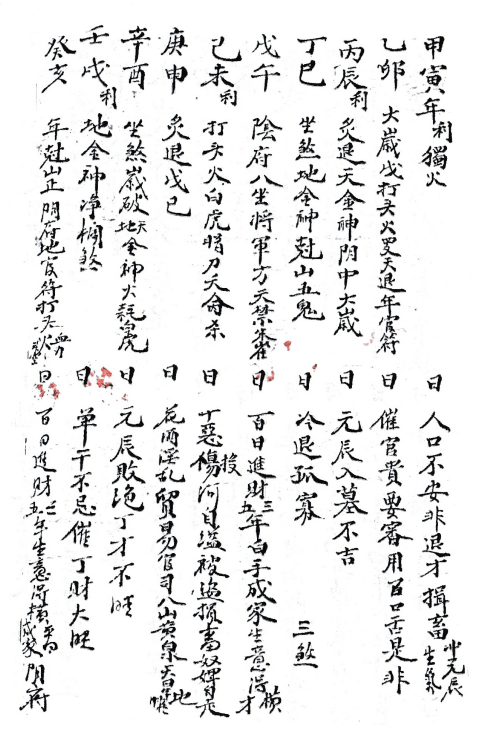 甲寅年利 獨火 日 人口不安非退才損畜 冲元辰 生氣
乙卯 大歲戊打头火罗天退年官符 日 催官貴要審用百口舌是非
丙辰利 炙退天金神阴中大歲 日 元辰入墓不吉
丁巳 坐煞地金神尅山五鬼 日 冷退孤寡 三煞
戊午 陰府八坐將軍方天禁朱雀 日 百日進財三五年白手成家生意得横才
己未利 打头火白虎 刀天命杀 日 十惡傷 投河自缢被盗損畜奴婢
庚申 炙退戊己 日 花酒淫乱貿易官司八山黄泉
辛酉 坐煞歲破天地金神火耗 虎 日 元辰敗绝丁才不旺
壬戌利 地金神净欄煞 日 单干不忌催丁財大旺
癸亥 年尅山正阴府地官符打头火 血刃 日 百日進財三五年生意得横 成家 阴府